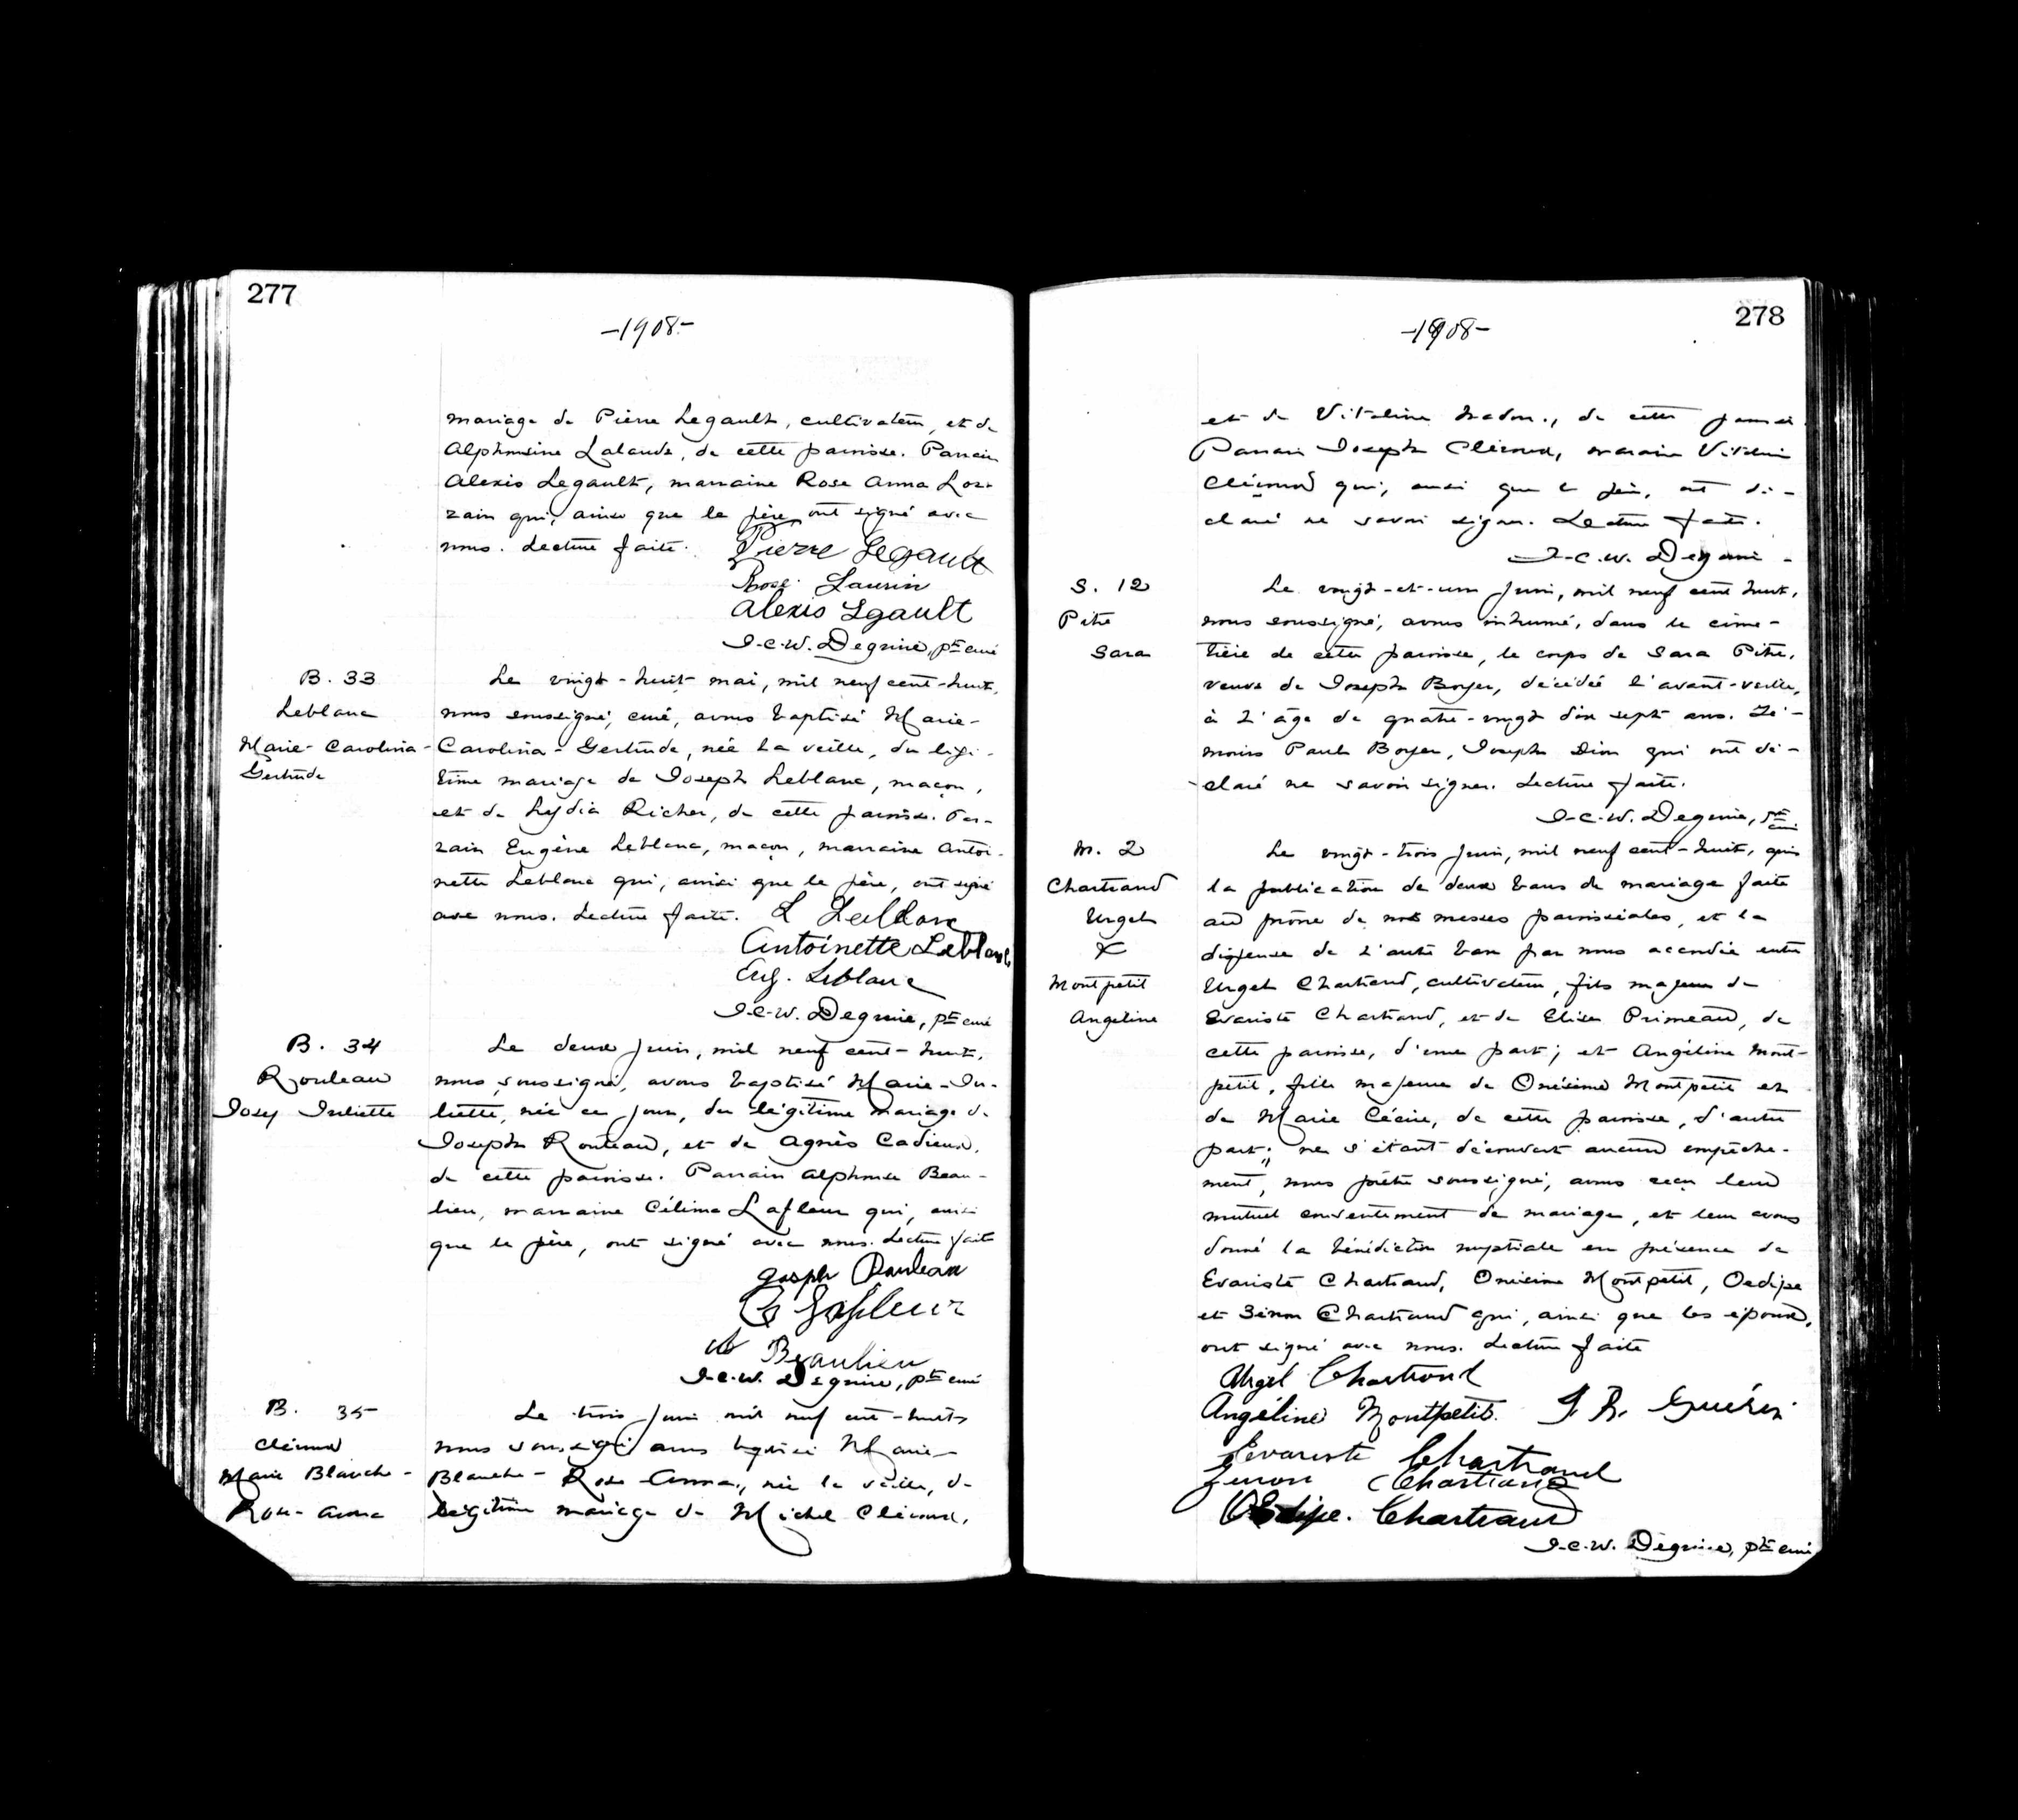 277
-1908-
mariage de Pierre Legault, cultivateur, et de
Alphonsine Lalande, de cette paroisse. Parrain
Alexis Legault, marraine Rose Anna Lor-
rain qui, ainsi que le père, ont signé avec
nous. Lecture faite. Pierre Legault
Rose Laurin
Alexis Lgault
J.C.W. Deguire, ptre curé
B. 33
Leblanc
Marie-Carolina-
Gertrude
Le vingt-huit mai, mil neuf cent-huit,
nous soussigné, curé, avons baptisé Marie-
Carolina-Gertrude, née la veille, du légi-
time mariage de Joseph Leblanc, maçon,
et de Lydia Richer, de cette paroisse. Par-
rain Eugène Leblanc, maçon, marraine Antoi-
nette Leblanc qui, ainsi que le père, ont signé
avec nous. Lecture faite. Leblanc
Antoinette Leblanc
Eug. Leblanc
J.C.W. Deguire, ptre curé
B. 34
Rouleau
Josep Juliette
Le deux juin, mil neuf cent-huit,
nous soussigné, avons baptisé Marie-Ju-
liette, née ce jour, du légitime mariage de
Joseph Rouleau, et de Agnès Cadieux,
de cette paroisse. Parrain Alphonse Beau-
lieu, marraine Célima Lafleur qui, ainsi
que le père, ont signé avec nous. Lecture faite
Joseph Rouleau
C Lafleur
A Beaulieu
J.C.W. Deguire, ptre curé
B. 35
Clément
Marie Blanche-
Rose-Anna
Le trois juin mil neuf cent-huit,
nous soussigné avons baptisé Marie-
Blanche-Rose-Anna, née la veille, du
légitime mariage de Michel Clément,
278
-1908-
et de Vitaline Nadon, de cette paroisse
Parrain Joseph Clément, marraine Vitaline
Clément qui, ainsi que le père, ont dé-
claré ne savoir signer. Lecture faite.
J.C.W. Deguire -
S. 12
Pitre
Sara
Le vingt-et-un juin, mil neuf cent huit,
nous soussigné, avons inhumé, dans le cime-
tière de cette paroisse, le corps de Sara Pitre,
veuve de Joseph Boyer, décédée l'avant-veille,
à l'âge de quatre-vingt dix sept ans. Té-
moins Paul Boyer, Joseph Dion qui ont dé-
claré ne savoir signer. Lecture faite.
J.C.W. Deguire, ptre curé
M. 2
Chartrand
Urgel
&
Montpetit
Angéline
Le vingt-trois juin, mil neuf cent-huit, après
la publication de deux bans de mariage faite
au prône de nos messes paroissiales, et la
dispense de l'autre ban par nous accordée entre
Urgel Chartrand, cultivateur, fils majeur de
Evariste Chartrand, et de Elise Primeau, de
cette paroisse, d'une part; et Angéline Mont-
petit, fille majeure de Onésime Montpetit et
de Marie Cécire, de cette paroisse, d'autre
part; ne s'étant découvert aucun empêche-
ment, nous prêtre soussigné, avons reçu leur
mutuel consentement de mariage, et leur avons
donné la bénédiction nuptiale en présence de
Evariste Chartrand, Onésime Montpetit, Oedipe
et Zénon Chartrand qui, ainsi que les époux,
ont signé avec nous. Lecture faite
Urgel Chartrand
Angéline Montpetit. J. R. Guérin
Evariste Chartrand
Zenon Chartrand
Oedipe. Chartrand
J.C.W. Deguire, ptre curé